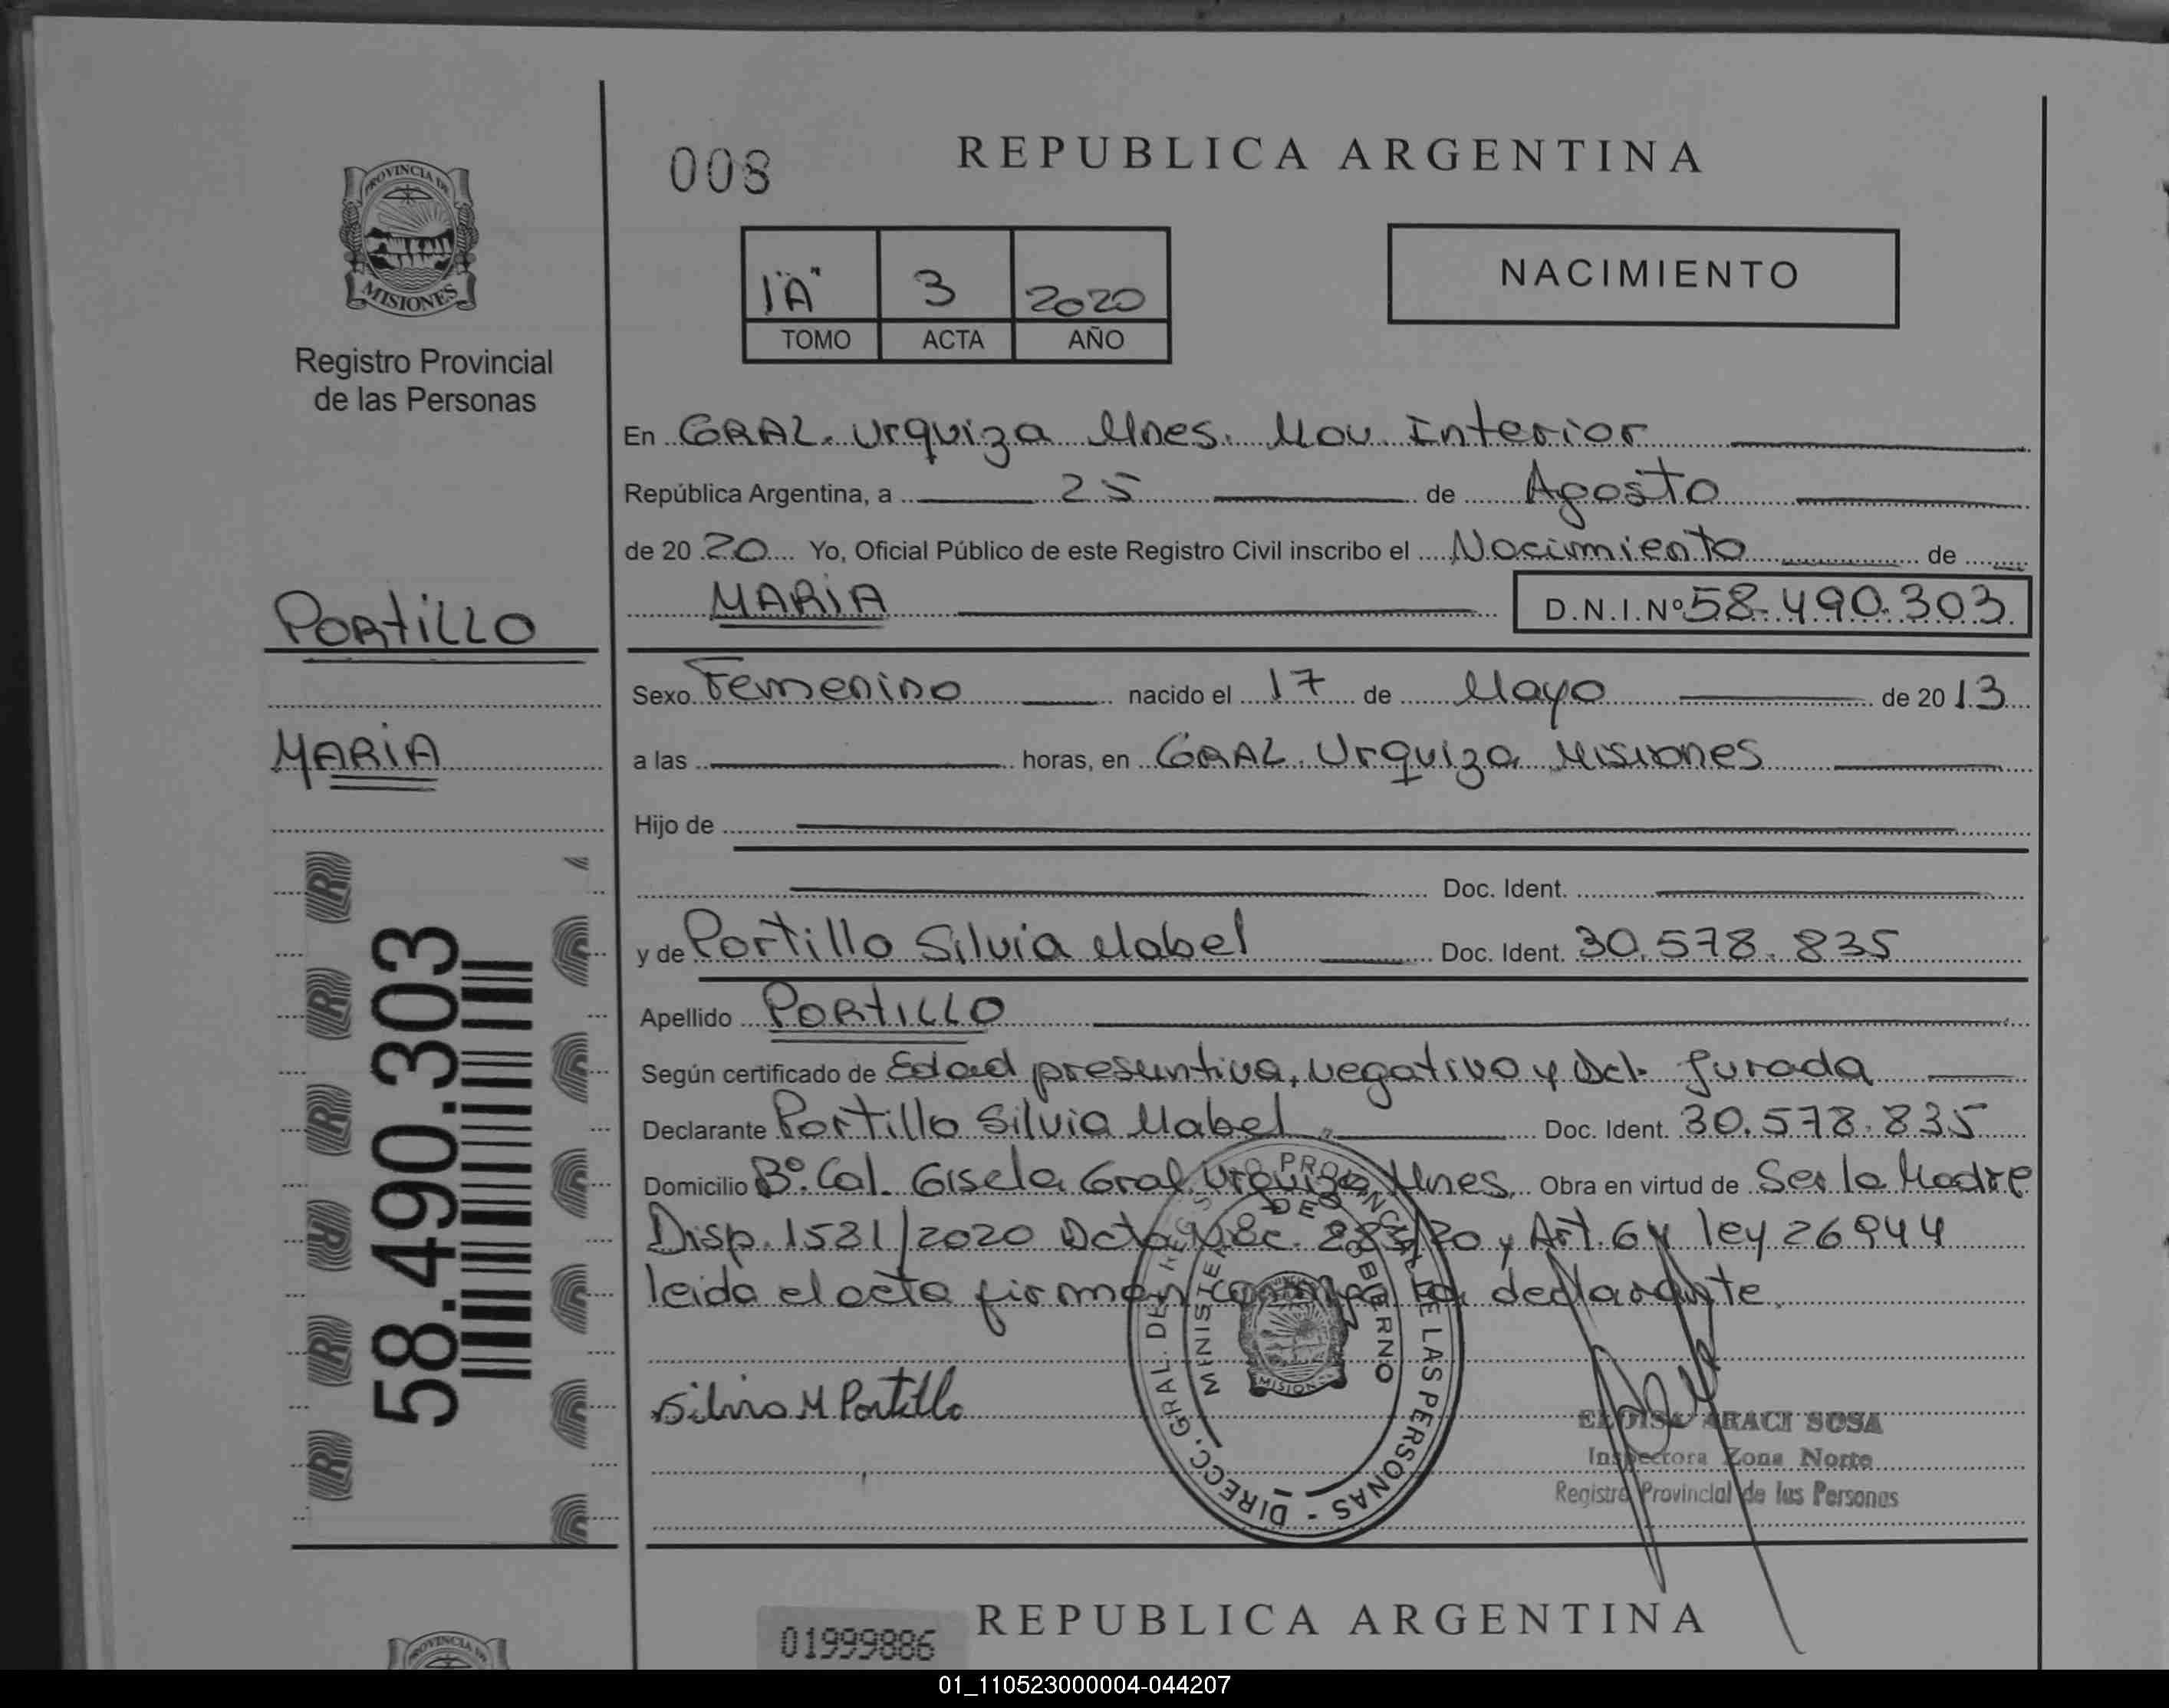 008
REPUBLICA ARGENTINA
PROVINCIA DE
MISIONES
Registro Provincial
de las Personas
1"A" 3 2020
TOMO ACTA AÑO
NACIMIENTO
En GRAL. Urquiza Mnes. Mov. Interior
República Argentina, a 25 de Agosto
de 20 20 Yo, Oficial Público de este Registro Civil inscribo el Nacimiento de
MARIA D.N.I.Nº 58.490.303
PORTILLO
MARIA
Sexo Femenino nacido el 17 de Mayo de 20 13
a las horas, en GRAL. Urquiza Misiones
Hijo de
Doc. Ident.
y de Portillo Silvia Mabel Doc. Ident. 30.578.835
Apellido PORTILLO
Según certificado de Edad presuntiva, negativo y Decl. Jurada
Declarante Portillo Silvia Mabel Doc. Ident. 30.578.835
Domicilio Bº. Cal. Gisela Gral. Urquiza Mnes. Obra en virtud de Ser la Madre
Disp. 1531/2020 283/20 y Art. 64 ley 26944
leida el acta firman la declarante.
Silvia M Portillo
58.490.303
DIRECC. GRAL. DEL REGISTRO PROVINCIAL DE LAS PERSONAS
MINISTERIO DE GOBIERNO
MISIONES
ELOISA ARACI SOSA
Inspectora Zona Norte
Registro Provincial de las Personas
01999886
REPUBLICA ARGENTINA
PROVINCIA DE
01_110523000004-044207